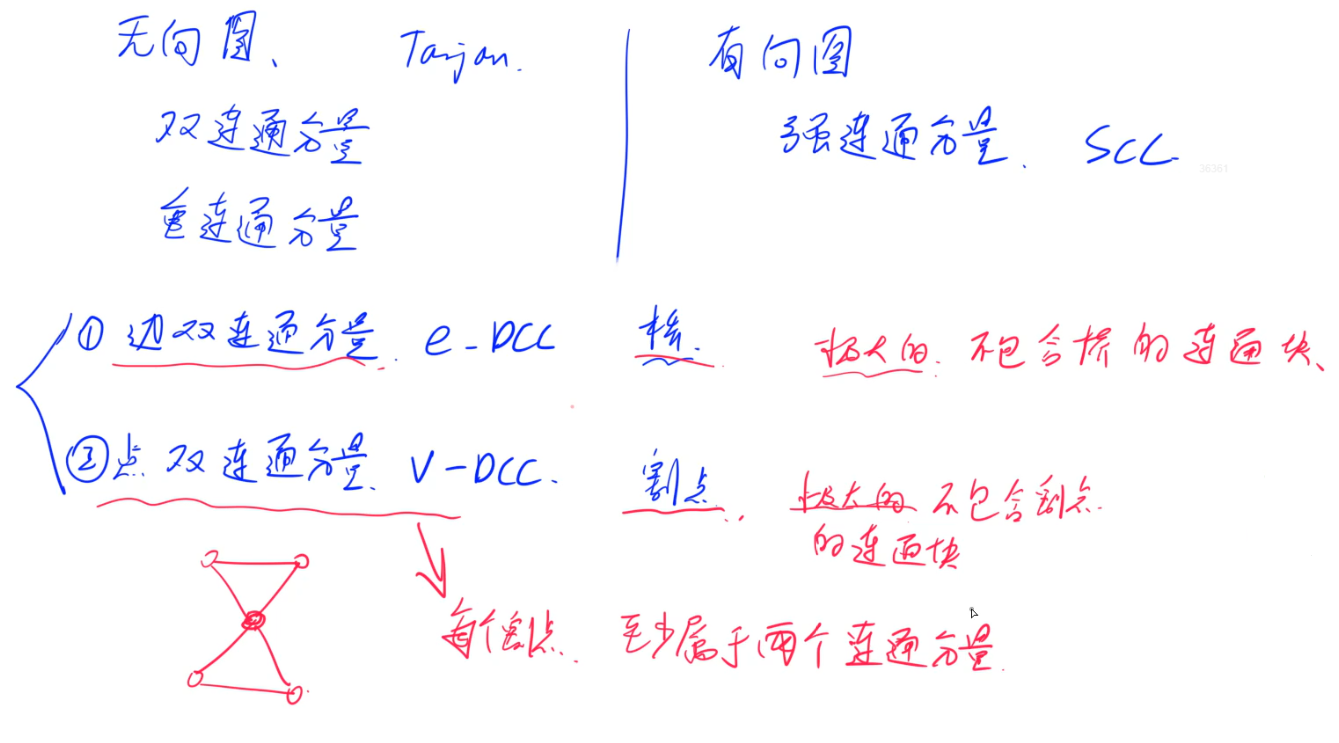 无向图、 Tarjan. 有向图
双连通分量 强连通分量. SCC
36361
重连通分量
① 边双连通分量. e-DCC 桥. 极大的. 不包含桥的连通块、
② 点双连通分量. V-DCC. 割点. 极大的 不包含割点.
的连通块
每个割点. 至少属于两个连通分量.